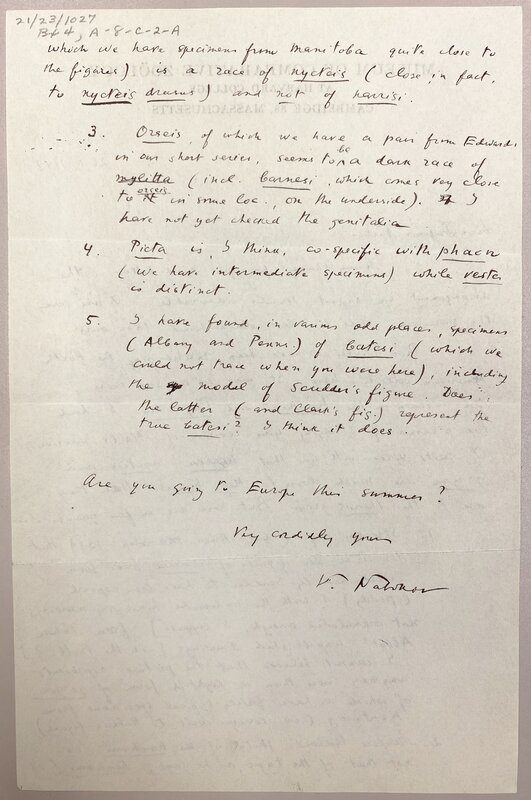 21/23/1027
Bx 4, A-8-C-2-A
which we have specimens from Manitoba quite close to
the figures) is a race of nycteis (close in fact,
to nycteis drusus) and not of harrisi.
3. Orseis, of which we have a pair from Edwards
in our short series, seems to be a dark race of
mylitta (incl. barnesi, which comes very close
to orseis in some loc., on the underside). I
have not yet checked the genitalia
4. Picta is, I think, co-specific with phaon
(we have intermediate specimens) while vesta
is distinct.
5. I have found, in various odd places, specimens
(Albany and Penns.) of batesi (which we
could not trace when you were here), including
the model of Scudder's figure. Does
the latter (and Clark's fig.) represent the
true batesi? I think it does.
Are you going to Europe this summer?
Very cordially yours
V. Nabokov